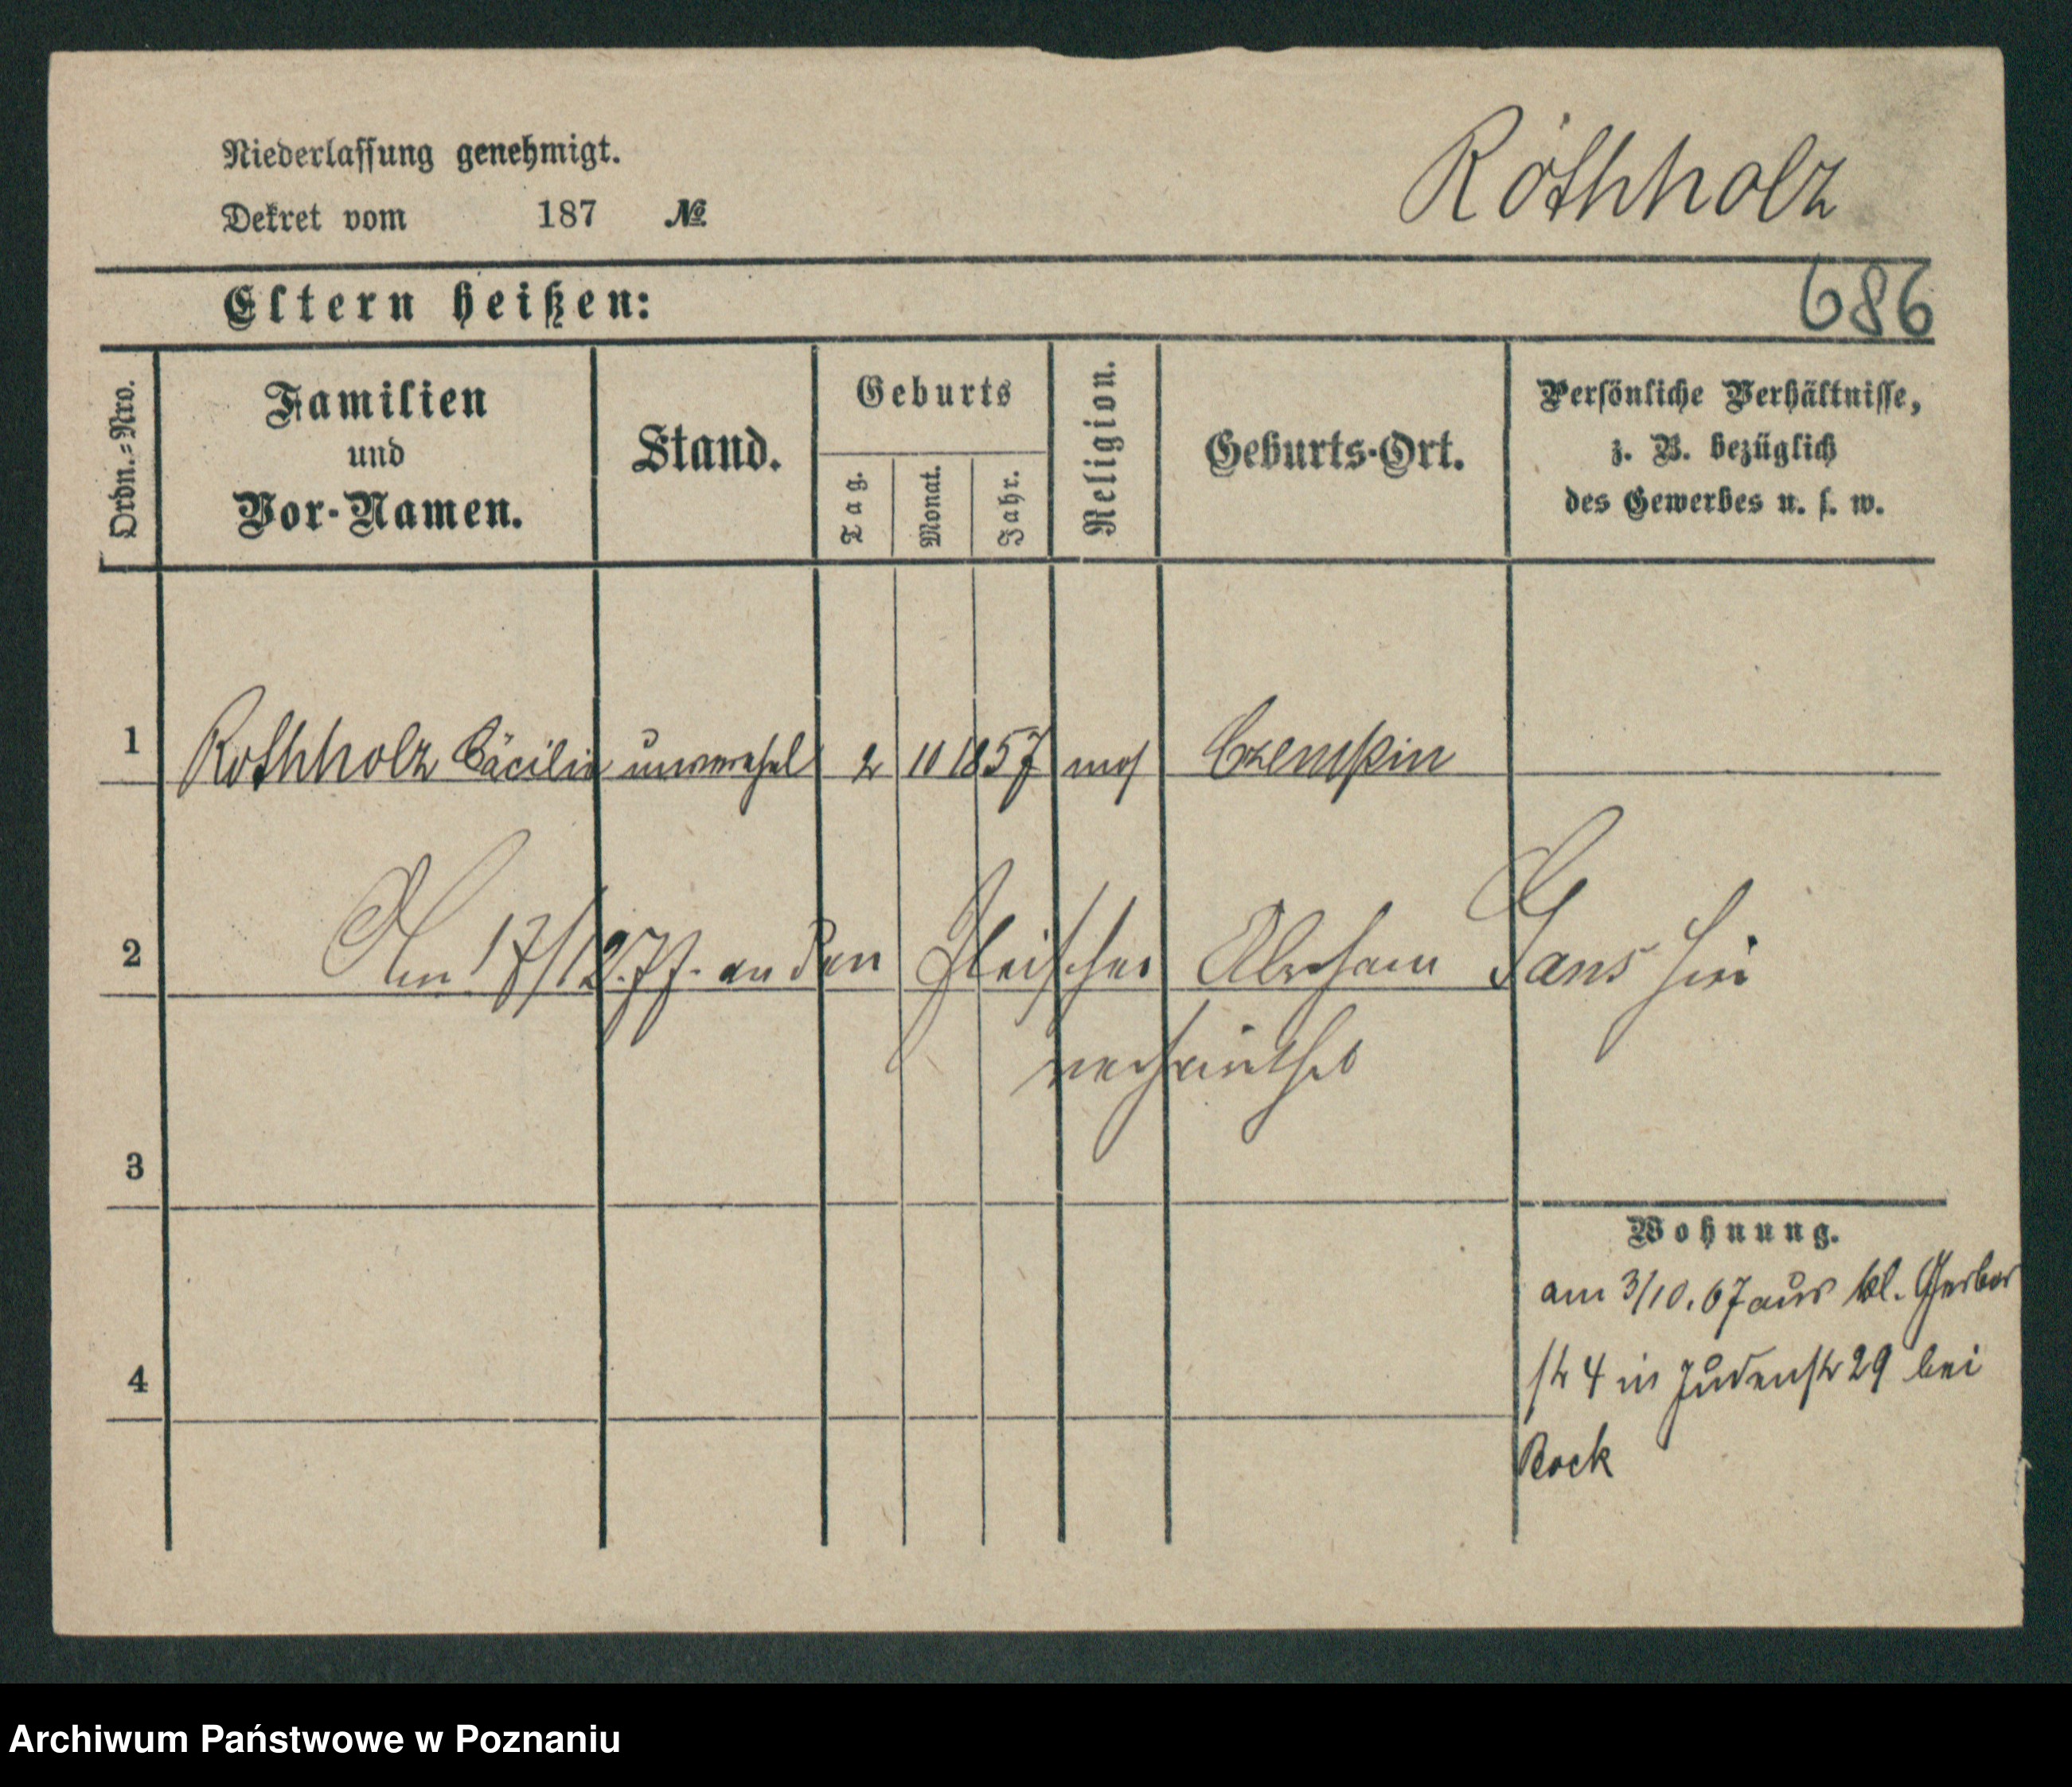 Rothholz
Niederlassung genehmigt.
Dekret vom 187 №
686
Eltern heißen:
Ordn.=Nro.
Familien
und
Vor-Namen.
Stand.
Geburts
Tag.
Monat.
Jahr.
Religion.
Geburts-Ort.
Persönliche Verhältnisse,
z. B. bezüglich
des Gewerbes u. s. w.
1 Rothholz Cäcilie unverehel 2 10 1857 mos Czempin
2 Am 17/12.77. an den Fleischer Abraham Gans hier
verheirathet
3
Wohnung.
am 3/10.67 aus kl. Gerber
str 4 in Judenstr 29 bei
4
Rock
Archiwum Państwowe w Poznaniu